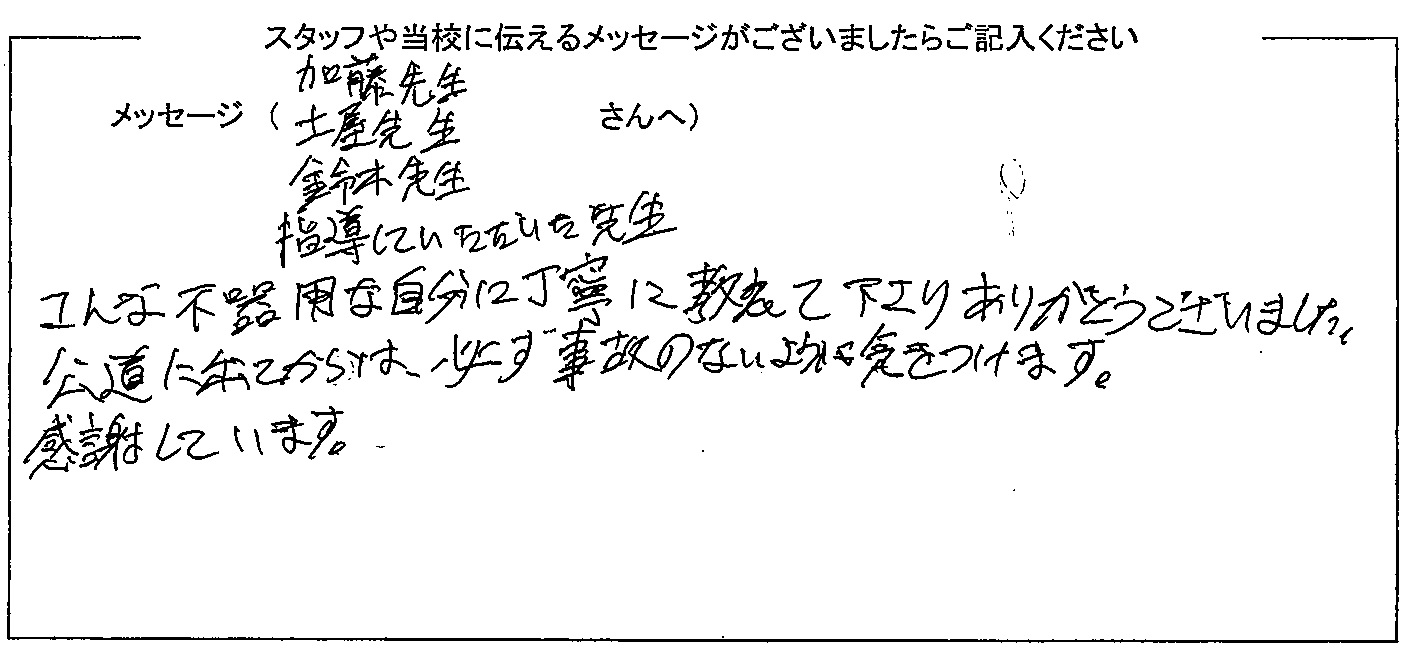 スタッフや当校に伝えるメッセージがございましたらご記入ください
加藤先生
メッセージ（土屋先生 さんへ）
鈴木先生
指導していただいた先生
こんな不器用な自分に丁寧に教えて下さりありがとうございました。
公道に出てからは、必ず事故のないように気をつけます。
感謝しています。